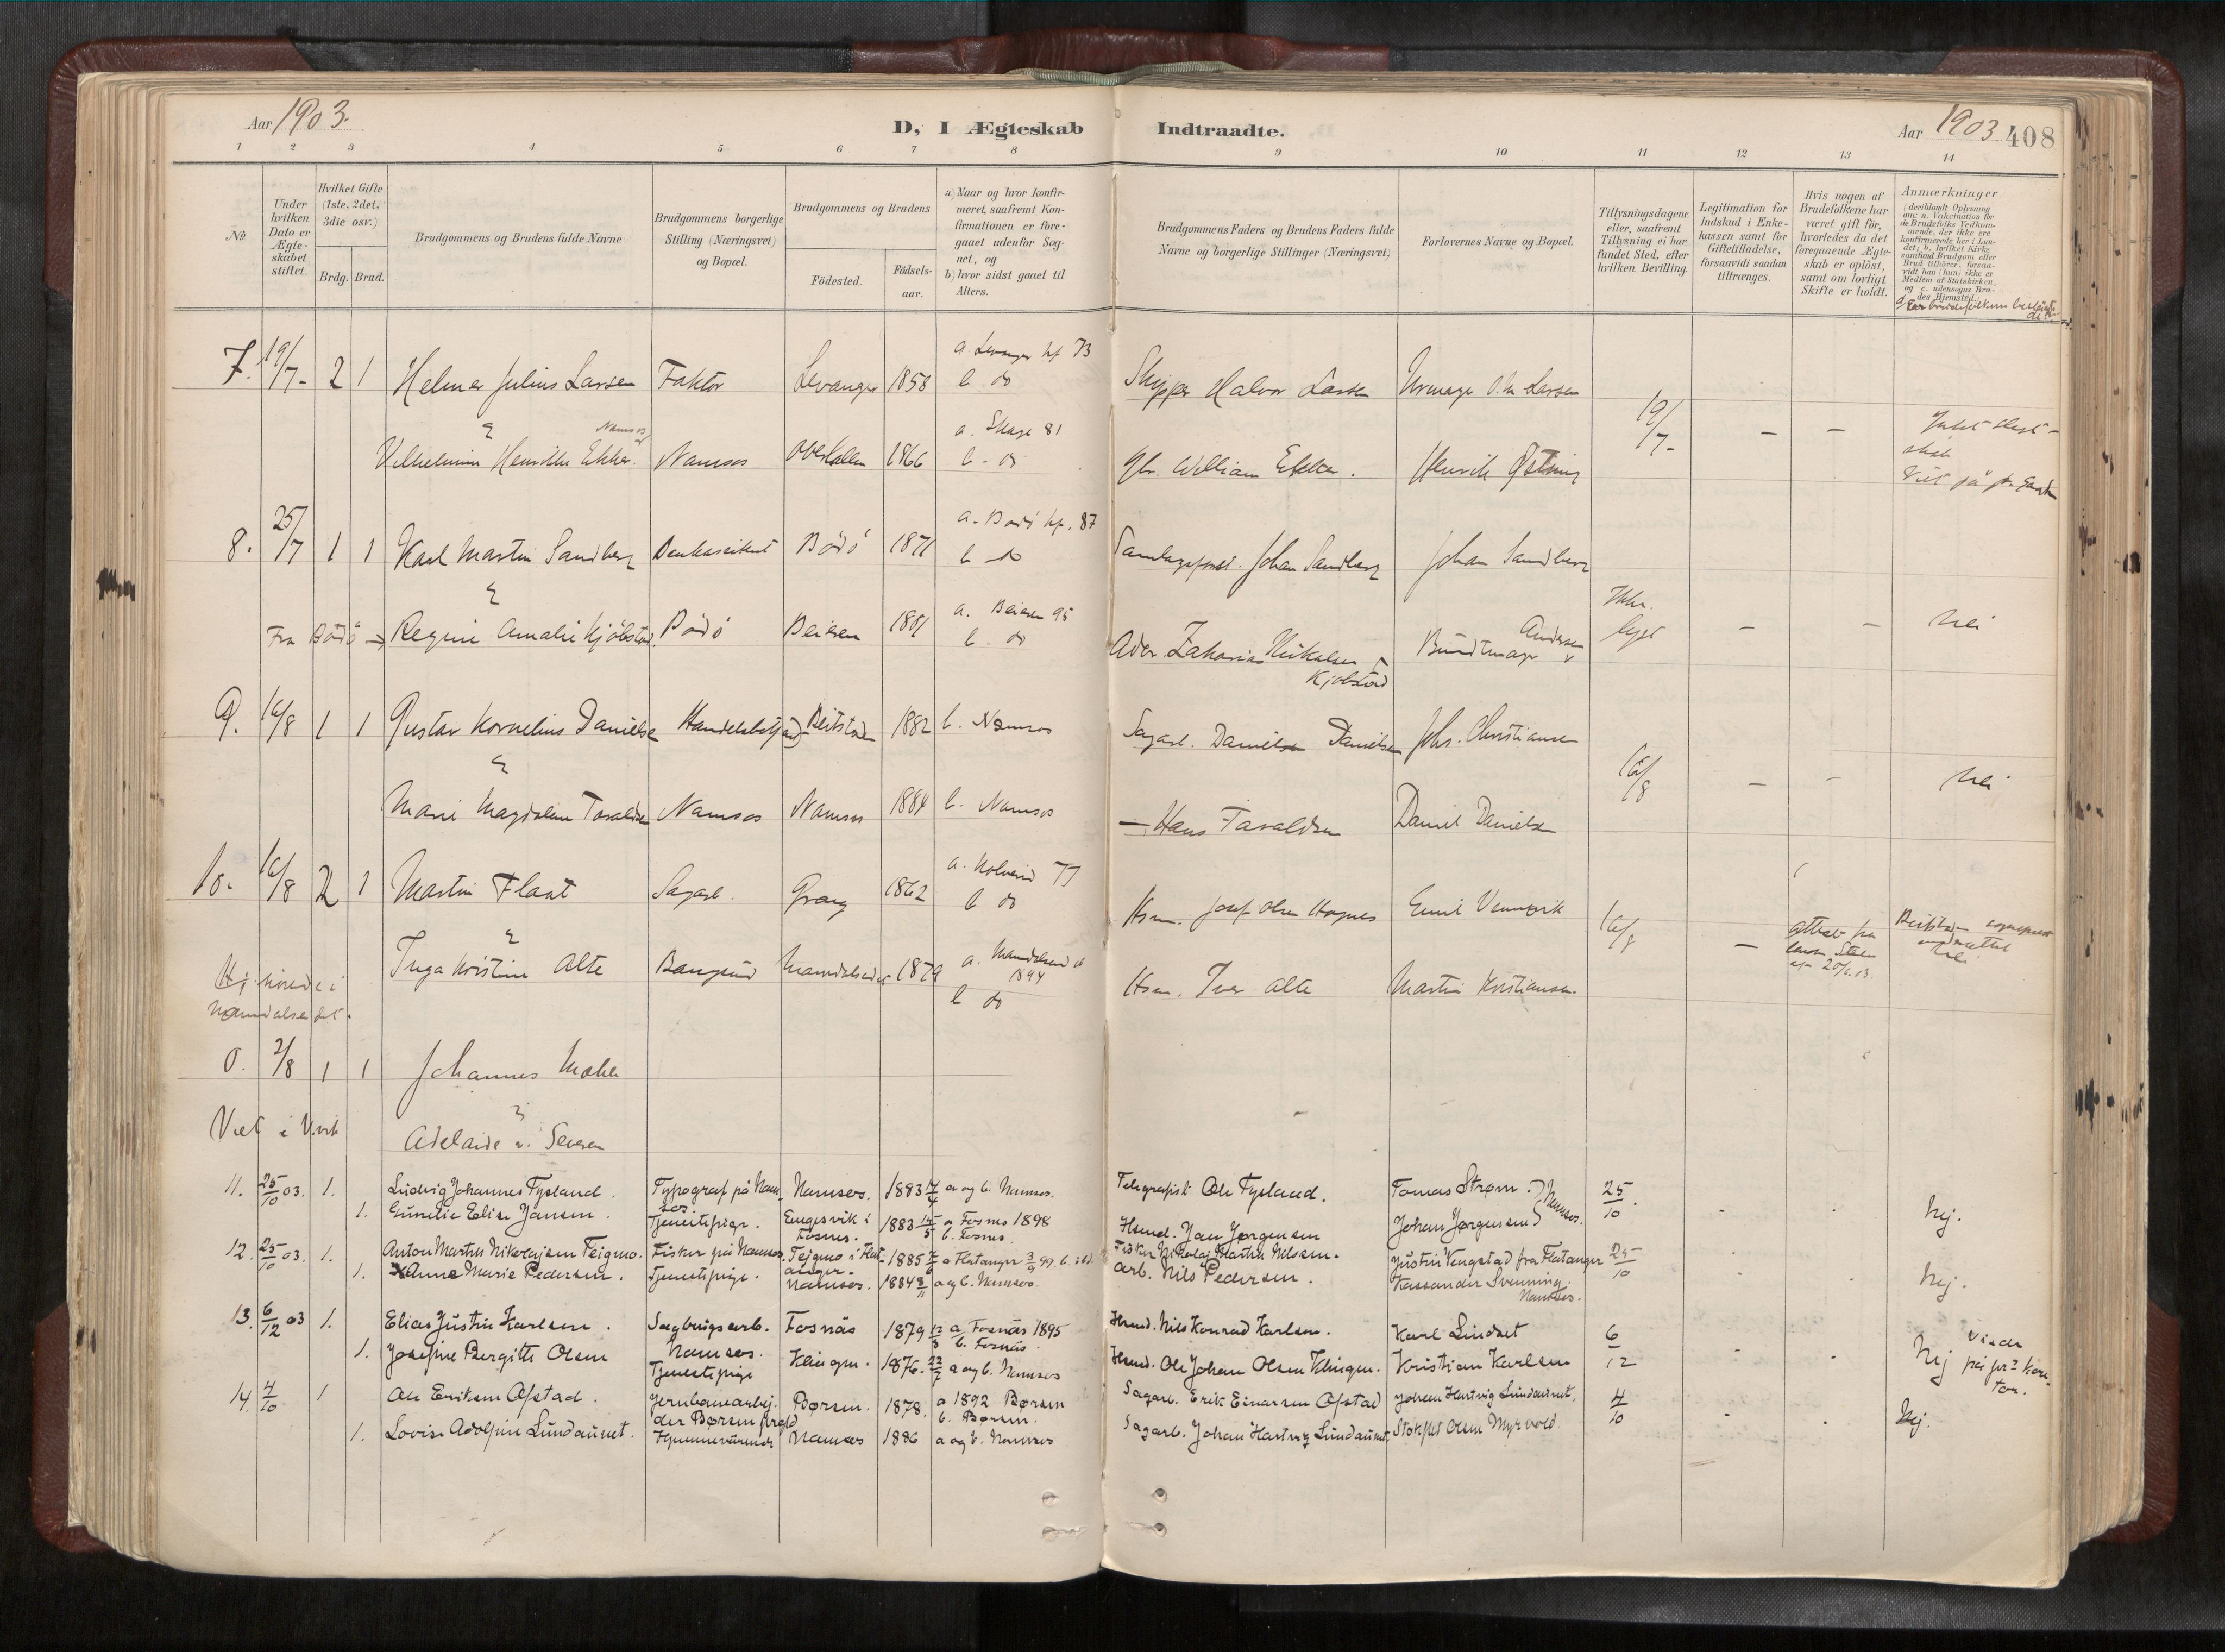 Aar 1903.
D, I Ægteskab Indtraadte.
Aar 1903 408
1 2 3 4 5 6 7 8 9 10 11 12 13 14
No
Under hvilken Dato er Ægteskabet stiftet.
Hvilket Gifte (1ste, 2det, 3die osv.)
Brdg. Brud.
Brudgommens og Brudens fulde Navne
Brudgommens borgerlige Stilling (Næringsvei) og Bopæl.
Brudgommens og Brudens
Födested.
Födselsaar.
a) Naar og hvor konfirmeret, saafremt Konfirmationen er foregaaet udenfor Sognet, og
b) hvor sidst gaaet til Alters.
Brudgommens Faders og Brudens Faders fulde Navne og borgerlige Stillinger (Næringsvei)
Forlovernes Navne og Bopæl.
Tillysningsdagene eller, saafremt Tillysning ei har fundet Sted, efter hvilken Bevilling.
Legitimation for Indskud i Enkekassen samt for Giftetilladelse, forsaavidt saadan tiltrænges.
Hvis nogen af Brudefolkene har været gift för, hvorledes da det foregaaende Ægteskab er oplöst, samt om lovligt Skifte er holdt.
Anmærkninger (deriblandt Oplysning om: a. Vakcination for de Brudefolks Vedkommende, der ikke ere konfirmerede her i Landet; b. hvilket Kirkesamfund Brudgom eller Brud tilhörer, forsaavidt han (hun) ikke er Medlem af Statskirken, og c. udensogns Brudes Hjemsted.)
7. 19/7- 2 1 Helmer Julius Larsen Faktor Levanger 1858 a. Levanger kf 73 b. do Skipper Halvor Larsen Urmager O. M Larsen
Vilhelmine Henrikke Ekker Namsos Overhallen 1866 a. Skage 81 b - do William Ekker. Henrik 19/7- - -
8. 25/7 1 1 Karl Martin Sandberg Bankassistent Bodö 1871 a. Bodö kf. 87 b do Johan Sandberg Johan Sandberg
Fra Bodö Regine Amalie Kjöbstad. Bodö Beiern 1881 a. Beiern 95 b. do Zakarias Nikolsen Kjöbstad Buntmager Andersen lyst - - Nei
9. 16/8 1 1 Gustav Kornelius Danielsen Handelsbetj Beitstaden 1882 b. Namsos Sagarb. Danielsen Johs. Christiansen
Marie Magdalene Tavaldsen Namsos Namsos 1884 b. Namsos - Hans Tavaldsen Daniel Danielsen 16/8 - - Nei
10. 16/8 2 1 Martin Flaat Sagarb. Grong 1862 a. Kolvereid 77 b do Hsm. Josef Olsen Emil Vennevik
Inga Kristine Alte Bangsund Namdalseidet 1879 a. Namdalseidet 1894 b do Hsm. Iver Alte Martin Kristiansen. 16/8 -
Namdalseidet.
0. 2/8 1 1 Johannes
Viet i
Adelaide
11. 25/10 03. 1. Ludvig Johannes Fysland. Typograf på Namsos Namsos. 1883 a og b. Namsos. Telegrafist Ole Fysland. Tomas Strøm. Namsos. 25/10.
1. Gunelie Elise Jansen. Tjenestepige. Engesvik i Fosnes. 1883 a Fosnes 1898 b. Fosnes. Hsmd. Jan Jørgensen Johan Jørgensen Nej.
12. 25/10 03. 1. Anton Martin Nikolajsen Feigmo. Fisker på Namsos. Feigmo i Flatanger. 1885 a Flatanger 3/9 99. Fisker Nikolaj Martin Nilsen. Justin Vengstad fra Flatanger 25/10
1. Anna Marie Pedersen. Tjenestepige. Namsos. 1884 a og b. Namsos. Arb. Nils Pedersen. Kassander Svenning. Namsos. Nej.
13. 6/12 03 1. Elias Justin Karlsen. Sagbrugsarb. Namsos. Fosnäs 1879 a Fosnäs 1895 b. Fosnäs. Hsmd. Nils Konrad Karlsen. Karl Lindset 6/12
1. Josefine Bergitte Olsen Tjenestepige Klingen. 1876. a og b. Namsos Hsmd. Ole Johan Olsen Klingen. Kristian Karlsen Nej
14. 4/10 1 Ole Eriksen Ofstad. Jernbanearbejder Børsen 1878. a 1892 Børsen b. Børsen. Sagarb. Erik Einarsen Ofstad Johan Hartvig Lindaunet. 4/10
1. Lovise Adolfine Lindaunet. Hjemmeværende Namsos 1886 a og b. Namsos Sagarb. Johan Hartvig Lindaunet. Olsen Myrvold. Nej.